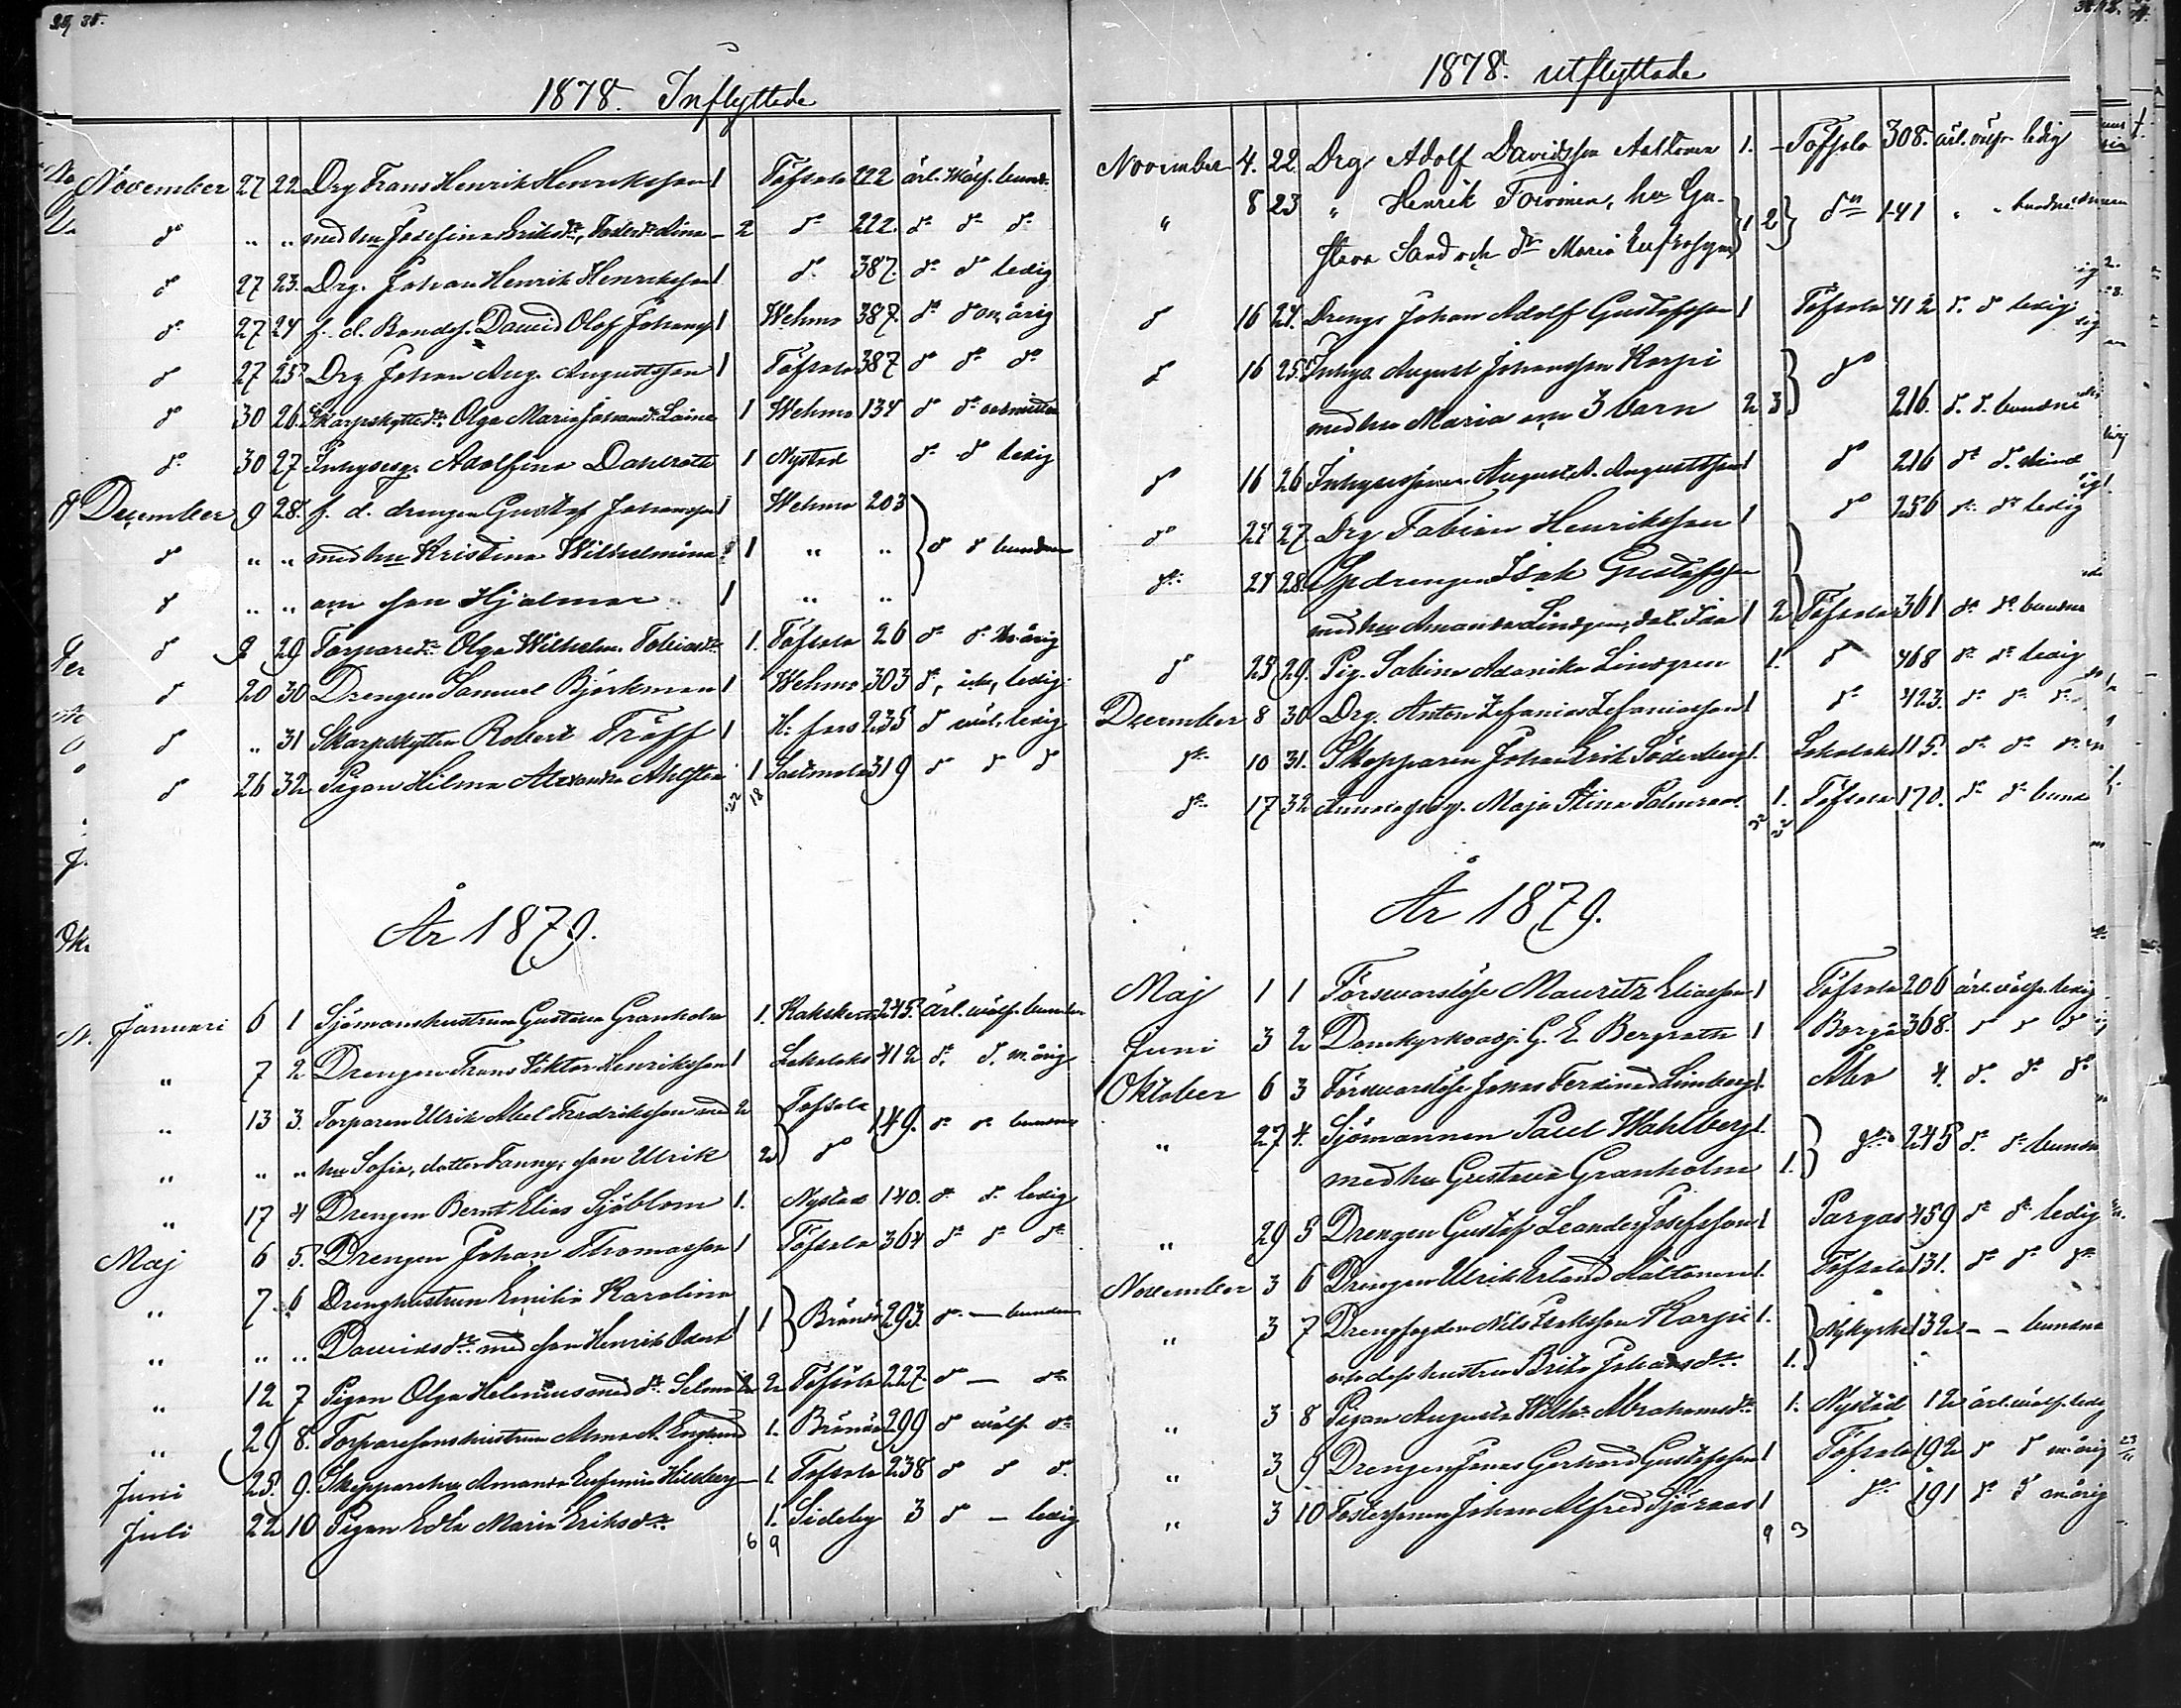 1878. Inflyttade
November 27 22 Drg Frans Henrik Henriksson 1 Töfsala 222 ärl. wälf. bund.
do " " med hu Josefina Eriksdr, 2 do 222. do do do
do 27 23. Drg. Johan Henrik Henriksson 1 do 387. do do ledig
do 27 24 f. d. Bondes. Dawid Olof Johanss. 1 Wehmo 387. do do om. årig
do 27 25 Drg Johan Aug. Augustsson 1 Töfsala 387 do do do
do 30 26. Skarpskyttedr. Olga Maria Johansdr Laine 1 Wehmo 134 do do
do 30 27 Inhysesg. Adolfina Dahlroth 1 Nystad do do ledig
December 9 28. f. d. drengen Gustaf Johansson 1 Wehmo 203
do " " med hu Kristina Wilhelmina 1 " " do do bunden
do " " son Hjalmar 1 " "
do 9 29 Torparedr Olga Wilhelm. Tobiasdr 1. Töfsala 26 do do årig
do 20 30 Drengen Samuel Björkman 1 Wehmo 303 do, ledig
do " 31 Skarpskytten Robert Träff 1 H: fors 235 do wäl. ledig
do 26 32 Pigan Hilma Alexandra 1 319 do do do
32 18
År 1879.
Januari 6 1 Sjömanshustrun Gustava Granholm 1. Kakskerta 245. ärl. wälf. bunden
" 7 2 Drengen Frans Viktor Henriksson 1 Lokalaks 412 do do m. årig
" 13 3. Torparen Ulrik Abel Fredriksson med 2 Töfsala 149. do do bundna
" " " hu Sofia, dotter Fanny, son Ulrik 2 do
" 17 4 Drengen Bernt Elias Sjöblom 1. Nystad 140. do do ledig
Maj 6 5. Drengen Johan Thomasson 1 Töfsala 364 do do do
" 7 6 Drenghustrun Emilia Karolina
" " " Dawidsdr med son Henrik 1 1 Brändö 293. do — bunden
" 12 7 Pigan Olga Helenius med dr Selma 2 Töfsala 227. do — do
" 29 8. Torparesonshustrun Alma A. Englund 1. Brändö 299 do wälf. do
Juni 25. 9. Skepparehu Amanda Eufemia 1 Töfsala 238 do do do
Juli 22 10 Pigan Edla Maria Eriksdr 1. Sideby 3 do — ledig
6 9
1878. utflyttade
November 4. 22. Drg Adolf Davidsson Aaltonen 1. – Töfsala 308. ärl. wälfr. ledig
" 8 23 " Henrik Toivonen, hu Gu-
stava Sand och dr Maria Eufrosyne 1 2 do 141 " " bundna
do 16 24. Drengs Johan Adolf Gustafsson 1 Töfsala 412 do do ledig
do 16 25. Inhys. August Johansson Karpi do
med hu Maria o 3 barn 2 3 216. do do bundne
do 16 26 Inhysessonen August A. Augustsson 1 do 216 do do
do 24 27. Drg Fabian Henriksson 1 do 256 do do ledig
do 24 28. Spdrengen Isak Gustafsson
med hu Amanda Lindgren, dot. Ida 1 2 Töfsala 361 do do bundna
do 25 29. Pig. Sabina Adamika Lindgren 1. do 468 do do ledig
December 8 30 Drg. Anton Zefanias Zefaniasson 1 do 423. do do do
do 10 31. Skepparen Johan Erik Söderberg 1. Lokalaks 115. do do do
do 17 32 Maja Stina 1. Töfsala 170. do do bunden
År 1879.
Maj 1 1 Förswarslöse Mauritz Eliasson 1 Töfsala 206 ärl. wälfr. ledig
Juni 3 2 Domkyrkoadj. G. E. Bergroth 1 Borgå 368. do do do
Oktober 6 3 Förswarslöse Jonas Ferdinand Limberg 1. Åbo 4. do do do
" 27 4. Sjömannen Paul Wahlberg 1.
med hu Gustava Granholm 1. do 245 do do bundna
" 29 5 Drengen Gustaf Leander Josefsson 1 Pargas 459 do do ledig
November 3 6 Drengen Ulrik Erland Aaltonen 1. Töfsala 131. do do do
" 3 7 Drengfogden Nils Isaksson Karpi 1. Nykyrka 132 – – bundna
och dess hustru Brita Johansdr 1.
" 3 8 Pigan Augusta Wilh. Abrahamsdr 1. Nystad 12 ärl. wälf. ledig
" 3 9 Drengen Jonas Gerhard Gustafsson 1 Töfsala 192 do do m. årig
" 3 10 Fostersonen Johan Alfred Sjöroos 1 do 191 do do m. årig
9 3